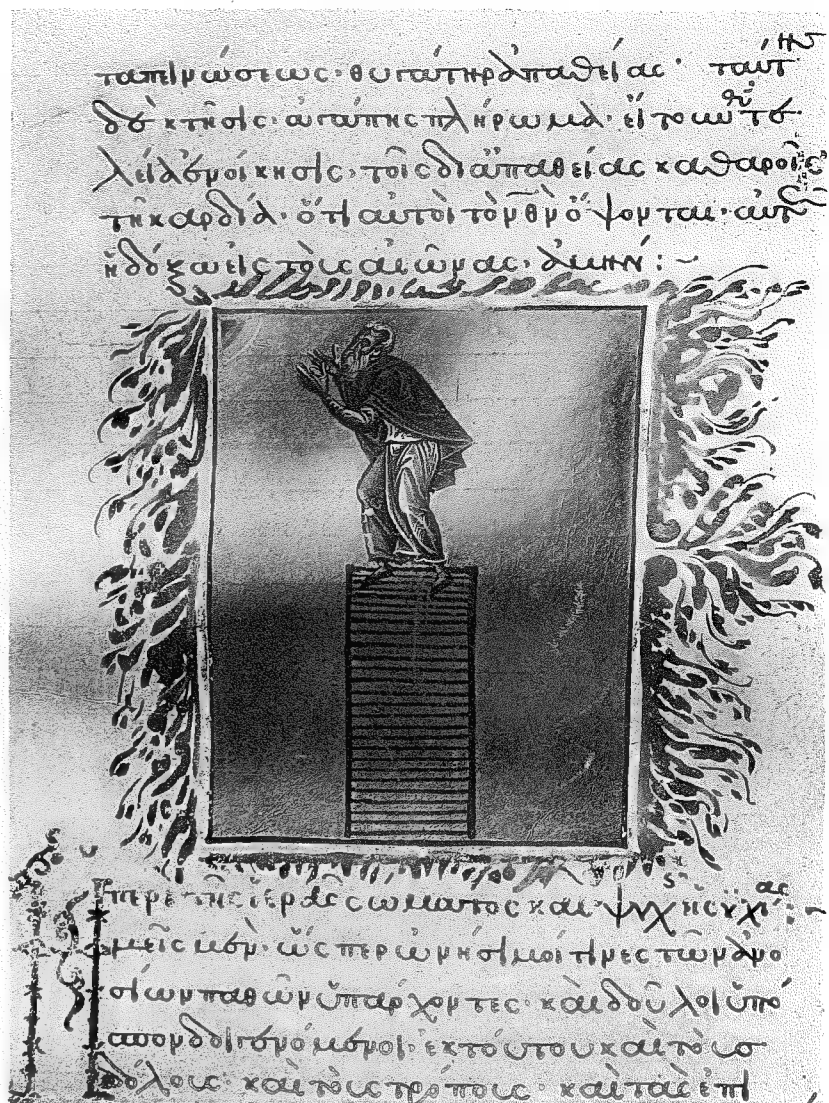 ταπεινώσεως· θυγάτηρ ἀπαθείας· ταύτης
δὲ κτῆσις· ἀγάπης πλήρωμα· εἴτουν θῦ τε
λεία ἐνοίκησις· τοῖς δι ἀπαθείας καθαροῖς
τῆ καρδία· ὅτι αὐτοὶ τὸν θν ὄψονται· αὐτῶ
ἡ δόξα εἰς τοὺς αἰῶνας· ἀμήν:
περὶ τῆς ἱερᾶς σώματος καὶ ψυχῆς ἡσυχίας:
ἡμεῖς μὲν· ὥσπερ ὠνήσιμοί τινες τῶν ἀνο
σίων παθῶν ὑπάρχοντες· καὶ δοῦλοι ὑπό
σπονδοι γενόμενοι· ἐκ τούτου καὶ τοὺς
δόλους· καὶ τοὺς τρόπους· καὶ τὰς ἐπι